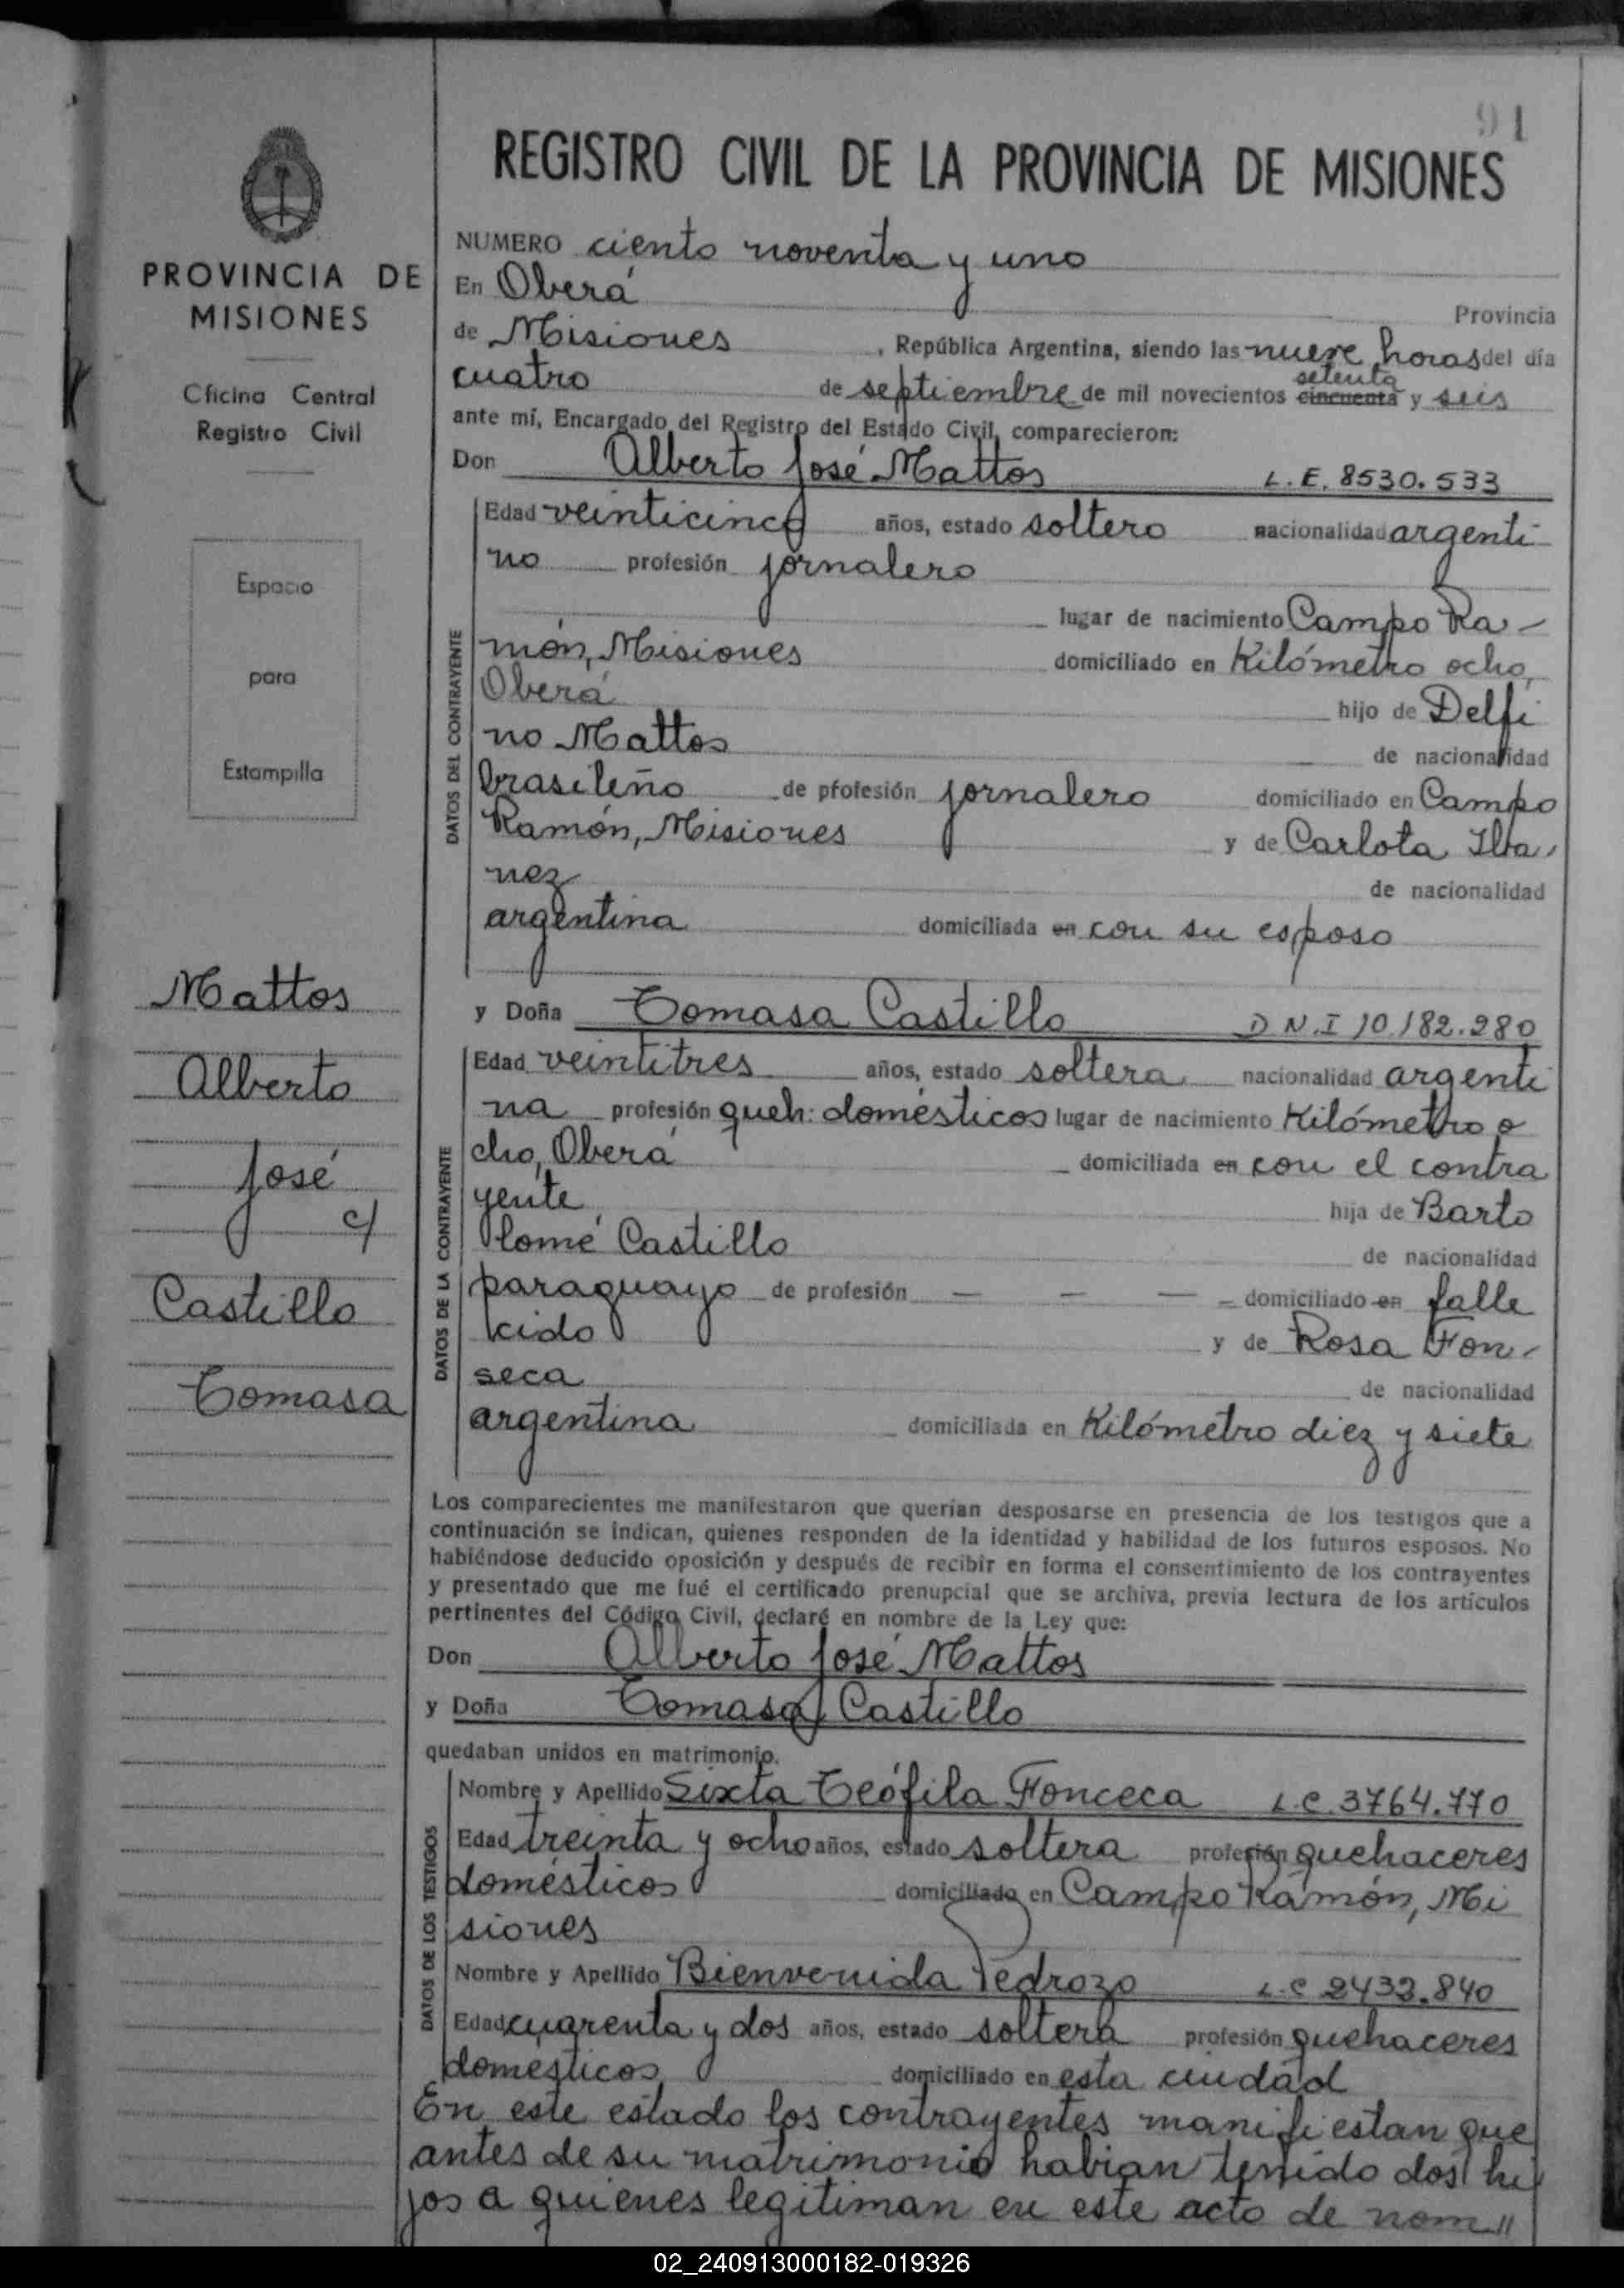 91
REGISTRO CIVIL DE LA PROVINCIA DE MISIONES
PROVINCIA DE
MISIONES
Oficina Central
Registro Civil
Espacio
para
Estampilla
Mattos
Alberto
José
c/
Castillo
Tomasa
NUMERO ciento noventa y uno
En Oberá Provincia
de Misiones , República Argentina, siendo las nueve horas del día
cuatro de septiembre de mil novecientos cincuenta setenta y seis
ante mí, Encargado del Registro del Estado Civil, comparecieron:
Don Alberto José Mattos L. E. 8530.533
DATOS DEL CONTRAYENTE
Edad veinticinco años, estado soltero nacionalidad argenti
no profesión jornalero
lugar de nacimiento Campo Ra-
món, Misiones domiciliado en Kilómetro ocho,
Oberá hijo de Delfi
no Mattos de nacionalidad
brasileño de profesión jornalero domiciliado en Campo
Ramón, Misiones y de Carlota Iba-
nez de nacionalidad
argentina domiciliada en con su esposo
y Doña Tomasa Castillo D N.I 10.182.280
DATOS DE LA CONTRAYENTE
Edad veintitres años, estado soltera nacionalidad argenti
na profesión queh: domésticos lugar de nacimiento Kilómetro o
cho, Oberá domiciliada en con el contra
yente hija de Barto
lomé Castillo de nacionalidad
paraguayo de profesión — — — domiciliado en falle
cido y de Rosa Fon-
seca de nacionalidad
argentina domiciliada en Kilómetro diez y siete
Los comparecientes me manifestaron que querían desposarse en presencia de los testigos que a
continuación se indican, quienes responden de la identidad y habilidad de los futuros esposos. No
habiéndose deducido oposición y después de recibir en forma el consentimiento de los contrayentes
y presentado que me fué el certificado prenupcial que se archiva, previa lectura de los artículos
pertinentes del Código Civil, declaré en nombre de la Ley que:
Don Alberto José Mattos
y Doña Tomasa Castillo
quedaban unidos en matrimonio.
DATOS DE LOS TESTIGOS
Nombre y Apellido Sixta Teófila Fonceca L.C. 3764.770
Edad treinta y ocho años, estado soltera profesión quehaceres
domésticos domiciliado en Campo Ramón, Mi
siones
Nombre y Apellido Bienvenida Pedrozo L.C 2432.840
Edad cuarenta y dos años, estado soltera profesión quehaceres
domesticos domiciliado en esta ciudad
En este estado los contrayentes manifiestan que
antes de su matrimonio habian tenido dos hi
jos a quienes legitiman en este acto de nom//
02_240913000182-019326